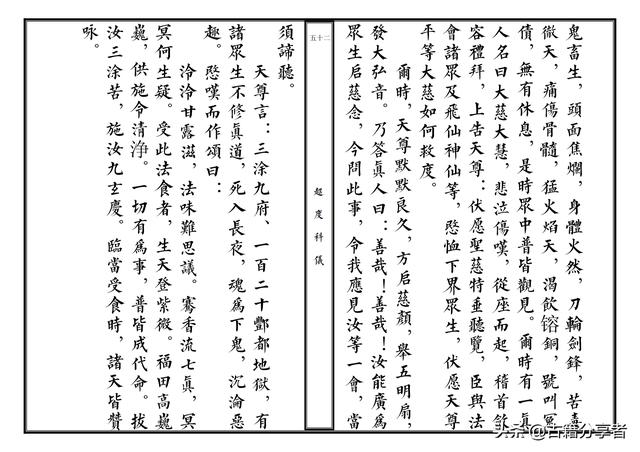 鬼畜生，頭面焦爛，身體火然，刀輪劍鋒，苦毒
徹天，痛傷骨髓，猛火焰天，渴飲镕銅，號叫冤
債，無有休息，是時眾中普皆觀見。爾時有一真
人名曰大慈大慧，悲泣傷嘆，從座而起，稽首斂
容禮拜，上告天尊：伏愿聖慈特垂聽覽，臣與法
會諸眾及飛仙神仙等，愍恤下界眾生，伏愿天尊
平等大慈如何救度。
爾時，天尊默默良久，方启慈顏，舉五明扇，
發大弘音。乃答眞人曰：善哉！善哉！汝能廣爲
眾生启慈念，今問此事，令我應見汝等一會，當
五十二
超度科儀
須諦聽。
天尊言：三涂九府、一百二十酆都地獄，有
諸眾生不修眞道，死入長夜，魂爲下鬼，沉淪惡
趣。愍嘆而作頌曰：
泠泠甘露滋，法味難思議。騫香流七眞，冥
冥何生疑。受此法食者，生天登紫微。福田高巍
巍，供施令清浄。一切有爲事，普皆成代命。拔
汝三涂苦，施汝九玄慶。臨當受食時，諸天皆贊
咏。
头条@古籍分享者